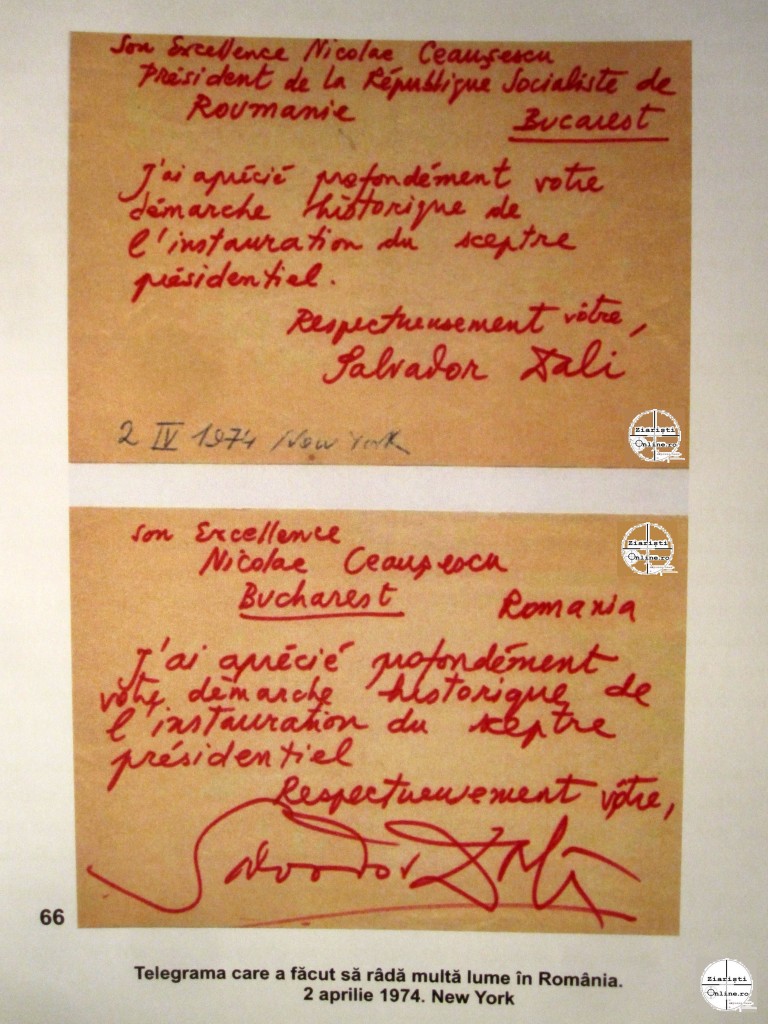 Son Excellence Nicolae Ceauşescu
Président de la République Socialiste de
Roumanie Bucarest
J'ai aprécié profondément votre
démarche historique de
l'instauration du sceptre
présidentiel.
Respectueusement vôtre,
Salvador Dali
2 IV 1974 New York
Ziarişti
Online.ro
Son Excellence
Nicolae Ceauşescu
Bucharest Romania
J'ai aprécié profondément
votre démarche historique de
l'instauration du sceptre
présidentiel
Respectueusement vôtre,
Salvador Dali
Ziarişti
Online.ro
66
Telegrama care a făcut să râdă multă lume în România.
2 aprilie 1974. New York
Ziarişti
Online.ro